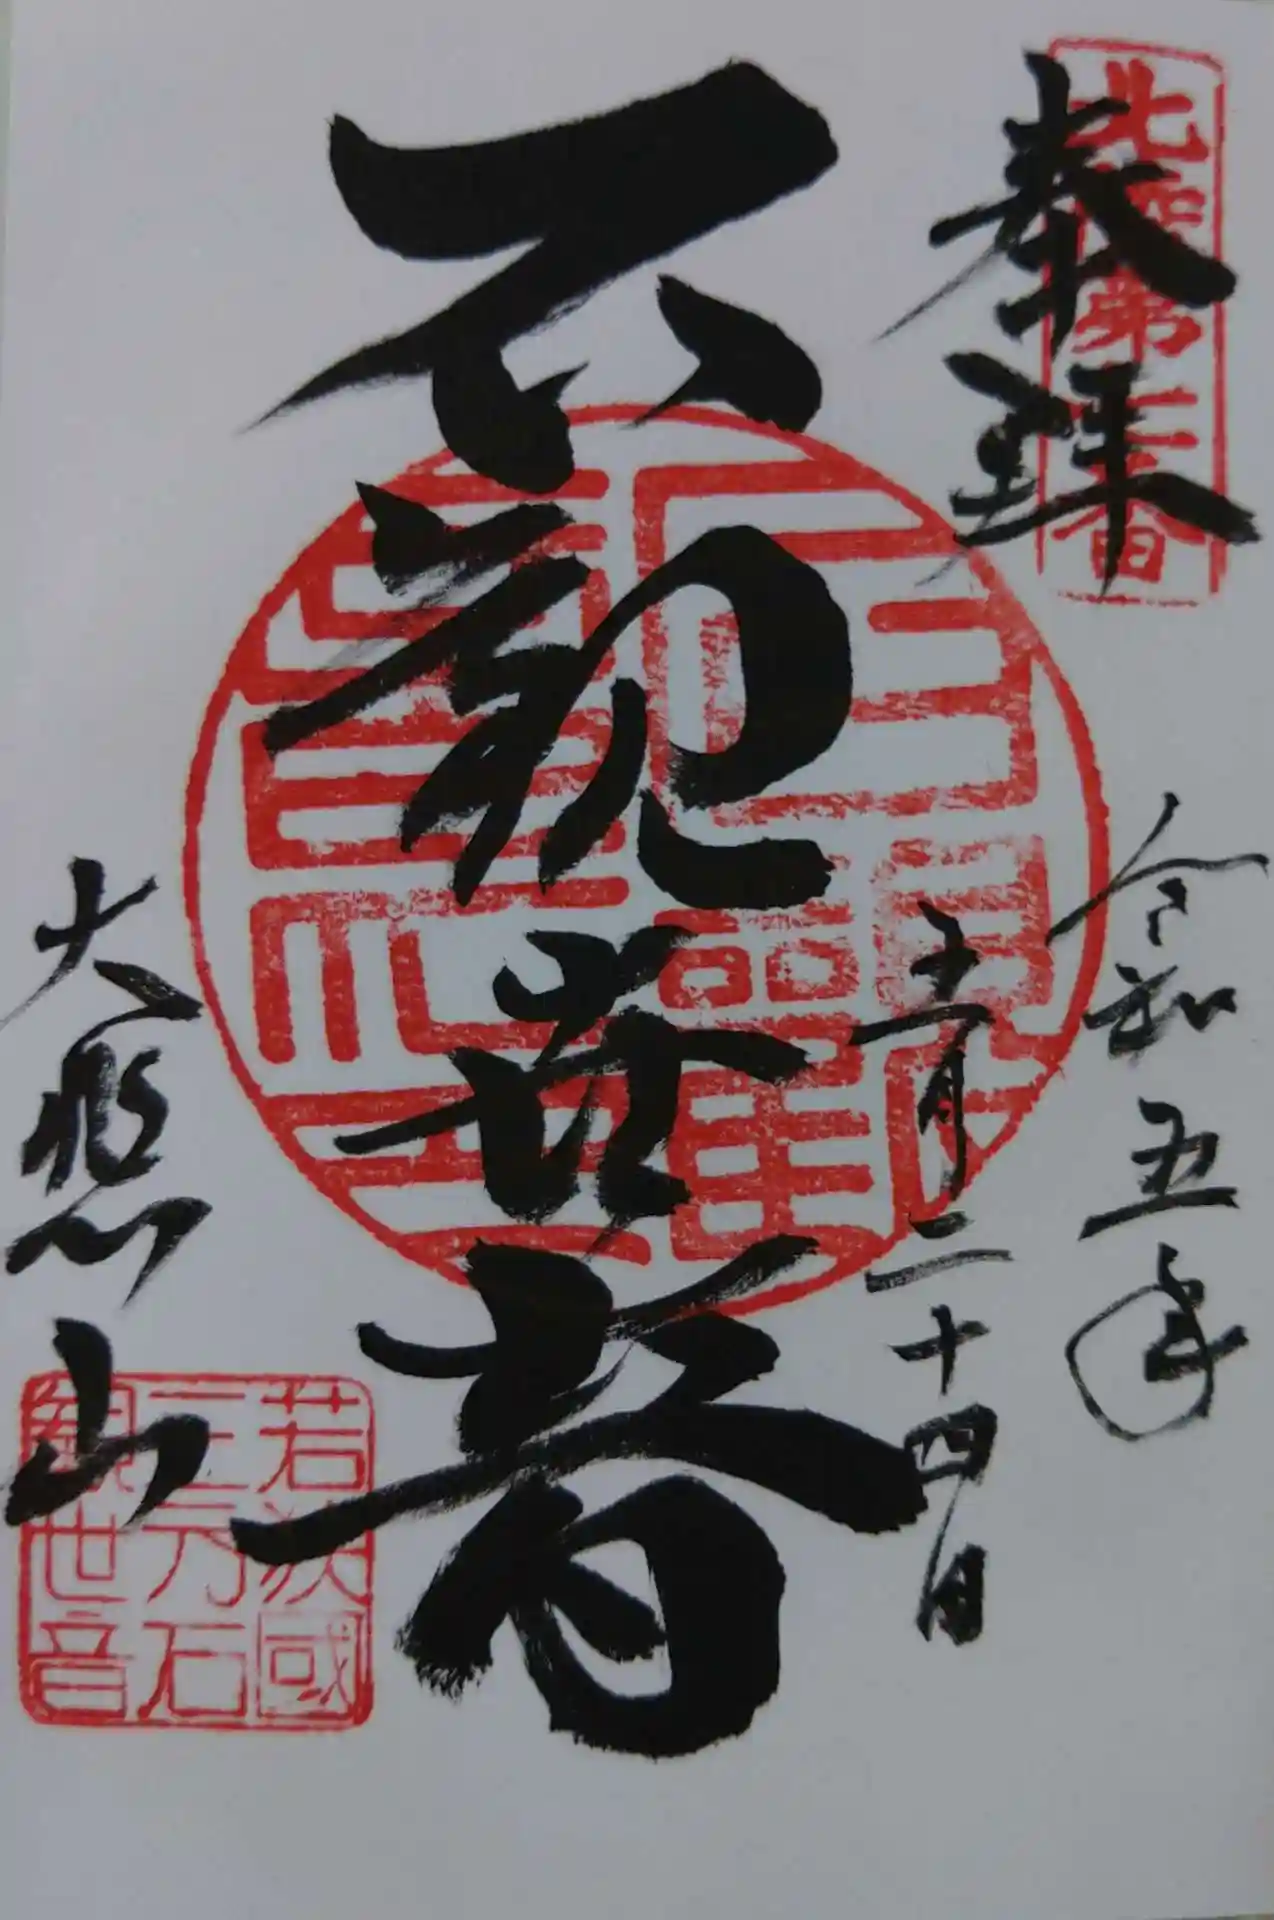 奉拝
令和五年
十一月二十四日
石観世音
大悲山
若狭國
三方石
観世音